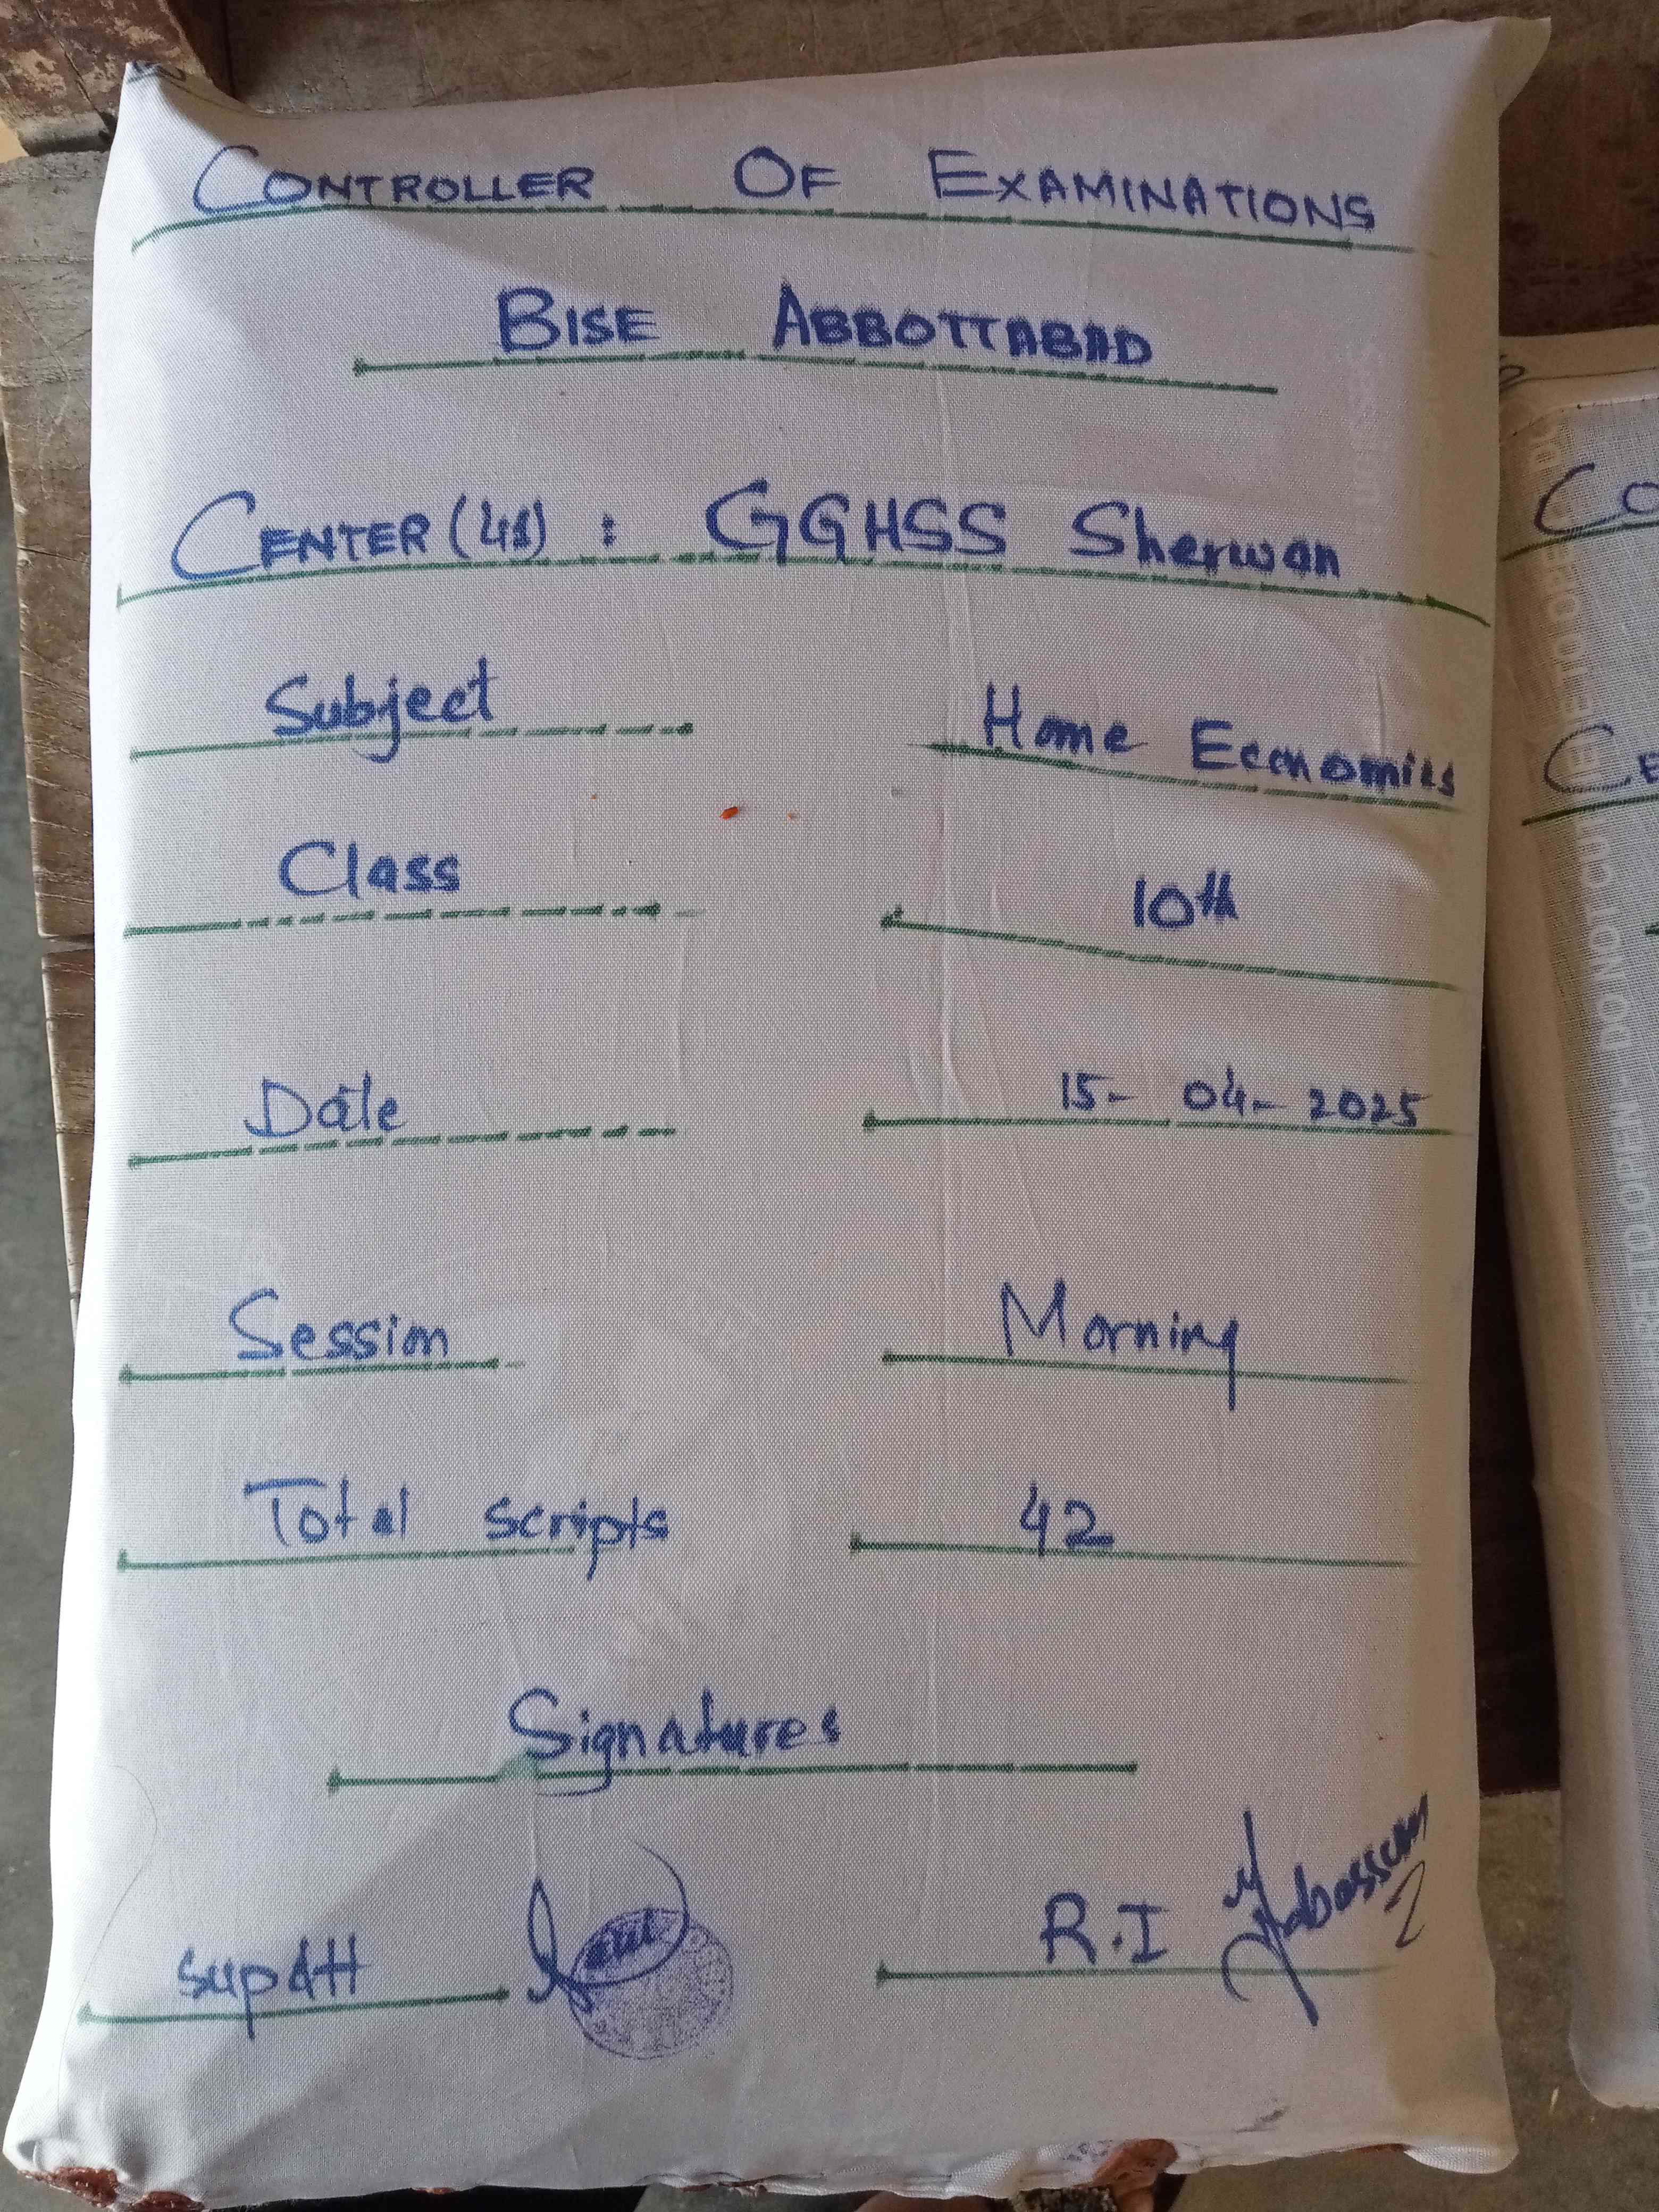 CONTROLLER OF EXAMINATIONS
BISE ABBOTTABAD
CENTER (41) : GGHSS Sherwan
Subject Home Economics
Class 10th
Date 15-04-2025
Session Morning
Total scripts 42
Signatures
supdtt R.I Tabassum
CO
CE
DO NOT CU
TO OPEN